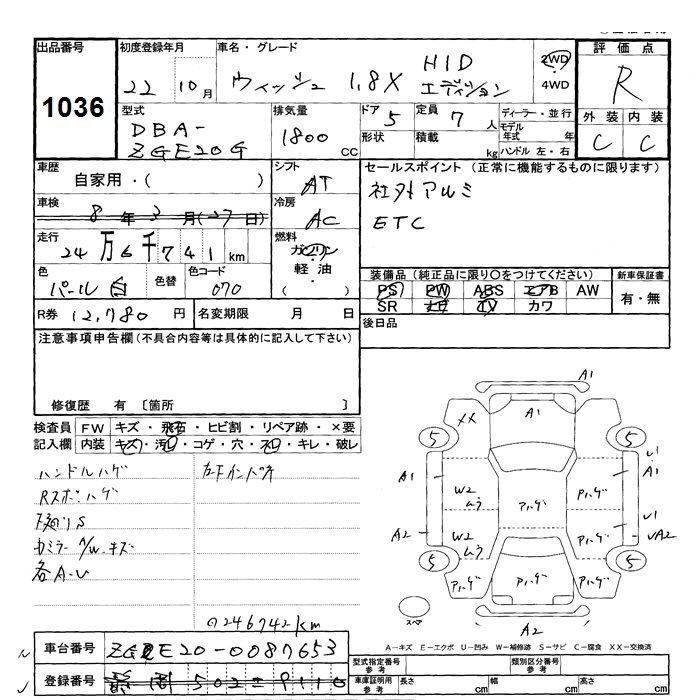 出品番号
1036
初度登録年月
22 10月
車名・グレード
ウィッシュ 1.8X HID エディション
2WD
・
4WD
評価点
R
外装 内装
C C
型式
DBA-
ZGE20G
排気量
1800 CC
ドア 5
形状
定員 7 人
積載 kg
ディーラー・並行
モデル年式 年
ハンドル 左・右
車歴
自家用・( )
シフト
AT
セールスポイント (正常に機能するものに限ります)
社外アルミ
ETC
車検
8年 3月(27日)
冷房
AC
走行
24万6千741km
燃料
ガソリン
・
軽油
( ・ )
色
パール白
色替
色コード
070
装備品 (純正品に限り○をつけてください)
PS PW ABS エアB AW
SR ナビ TV カワ
新車保証書
有・無
R券 12,780円
名変期限 月 日
後日品
注意事項申告欄(不具合内容等は具体的に記入して下さい)
修復歴 有 〔箇所 〕
検査員 FW キズ・飛石・ヒビ割・リペア跡・×要
記入欄 内装 キズ・汚レ・コゲ・穴・スレ・キレ・破レ
ハンドルハゲ
カードインパネ
各A-U
246742km
車台番号 ZGE20-0087653
登録番号 静岡 502
A1
XX
A1
5
5
A1
U1
A1
W2
ムラ
Aハゲ
Aハゲ
A2
W2
ムラ
Aハゲ
Aハゲ
U1
UA2
5
5
Aハゲ
Aハゲ
Aハゲ
スペア
A2
A-キズ E-エクボ U-凹み W-補修跡 S-サビ C-腐食 XX-交換済
型式指定番号
参考
類別区分番号
参考
車庫証明用
参考
長さ cm
幅 cm
高さ cm